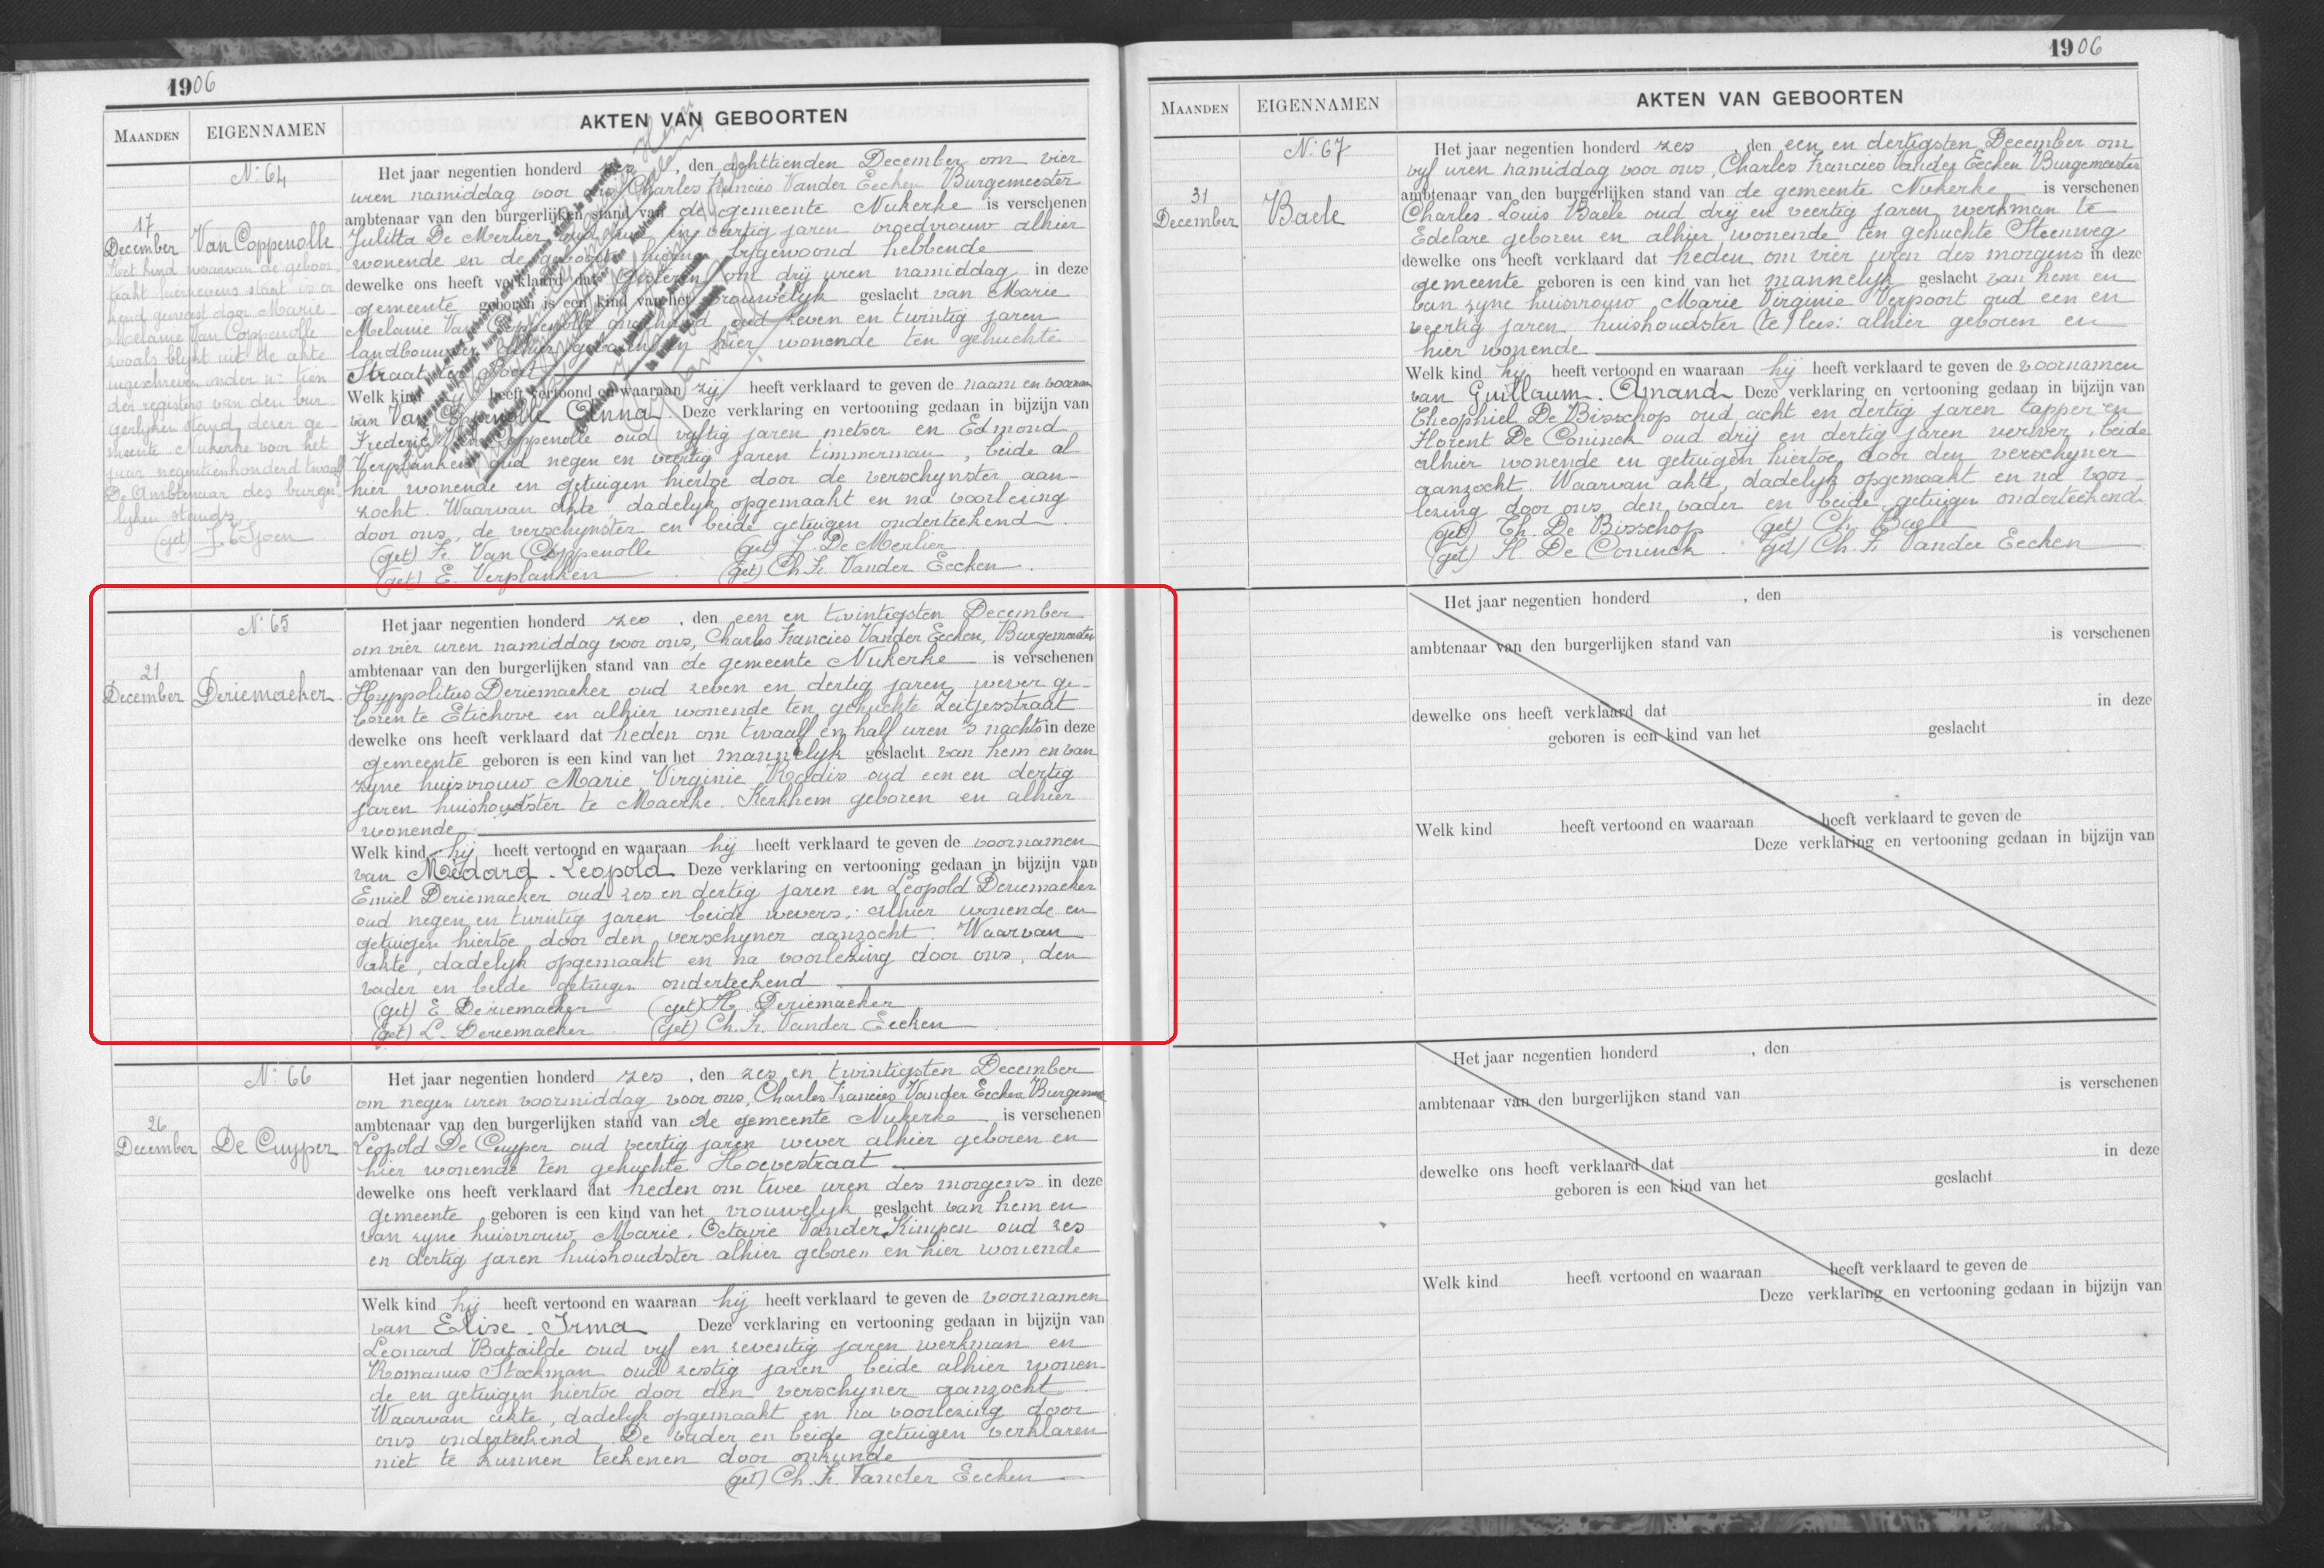 1906
MAANDEN
EIGENNAMEN
AKTEN VAN GEBOORTEN
N: 64
17
December
Van Coppenolle
Het kind waarvan de geboor
teakt hiernevens staat is er
kend geweest door Marie
Melanie Van Coppenolle
zooals blykt uit de akte
ingeschreven onder n: tien
der registers van den bur
gerlyken stand dezer ge
meente Nukerke voor het
jaar negentienhonderd twaalf
De Ambtenaar des burger
lyken stands
(get) J. Tjoen
Het jaar negentien honderd zes , den achttienden December om vier
uren namiddag voor ons Charles Francies Vander Eecken Burgemeester
ambtenaar van den burgerlijken stand van de gemeente Nukerke is verschenen
Julitta De Merlier oud en veertig jaren vroedvrouw alhier
wonende en de geboorte hierna bygewoond hebbende
dewelke ons heeft verklaard dat Gisteren om drij uren namiddag in deze
gemeente geboren is een kind van het vrouwelyk geslacht van Marie
Melanie Van Coppenolle ongehuwd oud zeven en twintig jaren
landbouwster alhier geboren en hier wonende ten gehuchte
Straat
Welk kind zy heeft vertoond en waaraan zij heeft verklaard te geven de naam en voornaam
van Van Coppenolle Anna Deze verklaring en vertooning gedaan in bijzijn van
Frederic Van Coppenolle oud vyftig jaren metser en Edmond
Verplanken oud negen en veertig jaren timmerman , beide al
hier wonende en getuigen hiertoe door de verschynster aan-
zocht. Waarvan akte, dadelyk opgemaakt en na voorlezing
door ons, de verschynster en beide getuigen onderteekend
(get) Fr. Van Coppenolle (get) J. De Merlier
(get) E. Verplanken (get) Ch. Fr. Vander Eecken .
N: 65
21
December
Deriemaeker
Het jaar negentien honderd zes , den een en twintigsten December
om vier uren namiddag voor ons, Charles Francies Vander Eecken, Burgemeester
ambtenaar van den burgerlijken stand van de gemeente Nukerke is verschenen
Hyppolitus Deriemaeker oud zeven en dertig jaren wever ge-
boren te Etichove en alhier wonende ten gehuchte Zeitjesstraat
dewelke ons heeft verklaard dat heden om twaalf en half uren 's nachts in deze
gemeente geboren is een kind van het mannelyk geslacht van hem en van
zyne huisvrouw Marie Virginie Rodis oud een en dertig
jaren huishoudster te Maerke-Kerkhem geboren en alhier
wonende
Welk kind hij heeft vertoond en waaraan hij heeft verklaard te geven de voornamen
van Médard-Leopold Deze verklaring en vertooning gedaan in bijzijn van
Emiel Deriemaeker oud zes en dertig jaren en Leopold Deriemaeker
oud negen en twintig jaren beide wevers, alhier wonende en
getuigen hiertoe door den verschyner aanzocht. Waarvan
akte, dadelyk opgemaakt en na voorlezing door ons, den
vader en beide getuigen onderteekend
(get) E. Deriemaeker (get) H. Deriemaeker
(get) L. Deriemaeker (get) Ch. Fr. Vander Eecken
N: 66
26
December
De Cuyper
Het jaar negentien honderd zes , den zes en twintigsten December
om negen uren voormiddag voor ons, Charles Francies Vander Eecken Burgemeester
ambtenaar van den burgerlijken stand van de gemeente Nukerke is verschenen
Leopold De Cuyper oud veertig jaren wever alhier geboren en
hier wonende ten gehuchte Hoevestraat
dewelke ons heeft verklaard dat heden om twee uren des morgens in deze
gemeente geboren is een kind van het vrouwelyk geslacht van hem en
van zyne huisvrouw Marie Octavie Vander Kimpen oud zes
en dertig jaren huishoudster alhier geboren en hier wonende
Welk kind hij heeft vertoond en waaraan hij heeft verklaard te geven de voornamen
van Elise-Irma Deze verklaring en vertooning gedaan in bijzijn van
Leonard Batailde oud vyf en zeventig jaren werkman en
Romanus Stockman oud zestig jaren beide alhier wonen-
de en getuigen hiertoe door den verschyner aanzocht
Waarvan akte, dadelyk opgemaakt en na voorlezing door
ons onderteekend. De vader en beide getuigen verklaren
niet te kunnen teekenen door onkunde
(get) Ch. Fr. Vander Eecken
1906
MAANDEN
EIGENNAMEN
AKTEN VAN GEBOORTEN
N: 67
31
December
Baele
Het jaar negentien honderd zes , den een en dertigsten December om
vyf uren namiddag voor ons, Charles Francies Vander Eecken Burgemeester
ambtenaar van den burgerlijken stand van de gemeente Nukerke is verschenen
Charles-Louis Baele oud drij en veertig jaren werkman te
Edelare geboren en alhier wonende ten gehuchte Steenweg
dewelke ons heeft verklaard dat heden om vier uren des morgens in deze
gemeente geboren is een kind van het mannelyk geslacht van hem en
van zyne huisvrouw Marie Virginie Verpoort oud een en
veertig jaren huishoudster (te) lees: alhier geboren en
hier wonende
Welk kind hij heeft vertoond en waaraan hij heeft verklaard te geven de voornamen
van Guillaum-Omand Deze verklaring en vertooning gedaan in bijzijn van
Theophiel De Bisschop oud acht en dertig jaren tapper en
Florent De Coninck oud drij en dertig jaren verwer, beide
alhier wonende en getuigen hiertoe door den verschyner
aanzocht. Waarvan akte, dadelyk opgemaakt en na voor-
lezing door ons, den vader en beide getuigen onderteekend
(get) Th. De Bisschop (get) Ch. Baele
(get) Fl De Coninck (get) Ch. Fr Vander Eecken
Het jaar negentien honderd , den
ambtenaar van den burgerlijken stand van is verschenen
dewelke ons heeft verklaard dat in deze
geboren is een kind van het geslacht
Welk kind heeft vertoond en waaraan heeft verklaard te geven de
Deze verklaring en vertooning gedaan in bijzijn van
Het jaar negentien honderd , den
ambtenaar van den burgerlijken stand van is verschenen
dewelke ons heeft verklaard dat in deze
geboren is een kind van het geslacht
Welk kind heeft vertoond en waaraan heeft verklaard te geven de
Deze verklaring en vertooning gedaan in bijzijn van